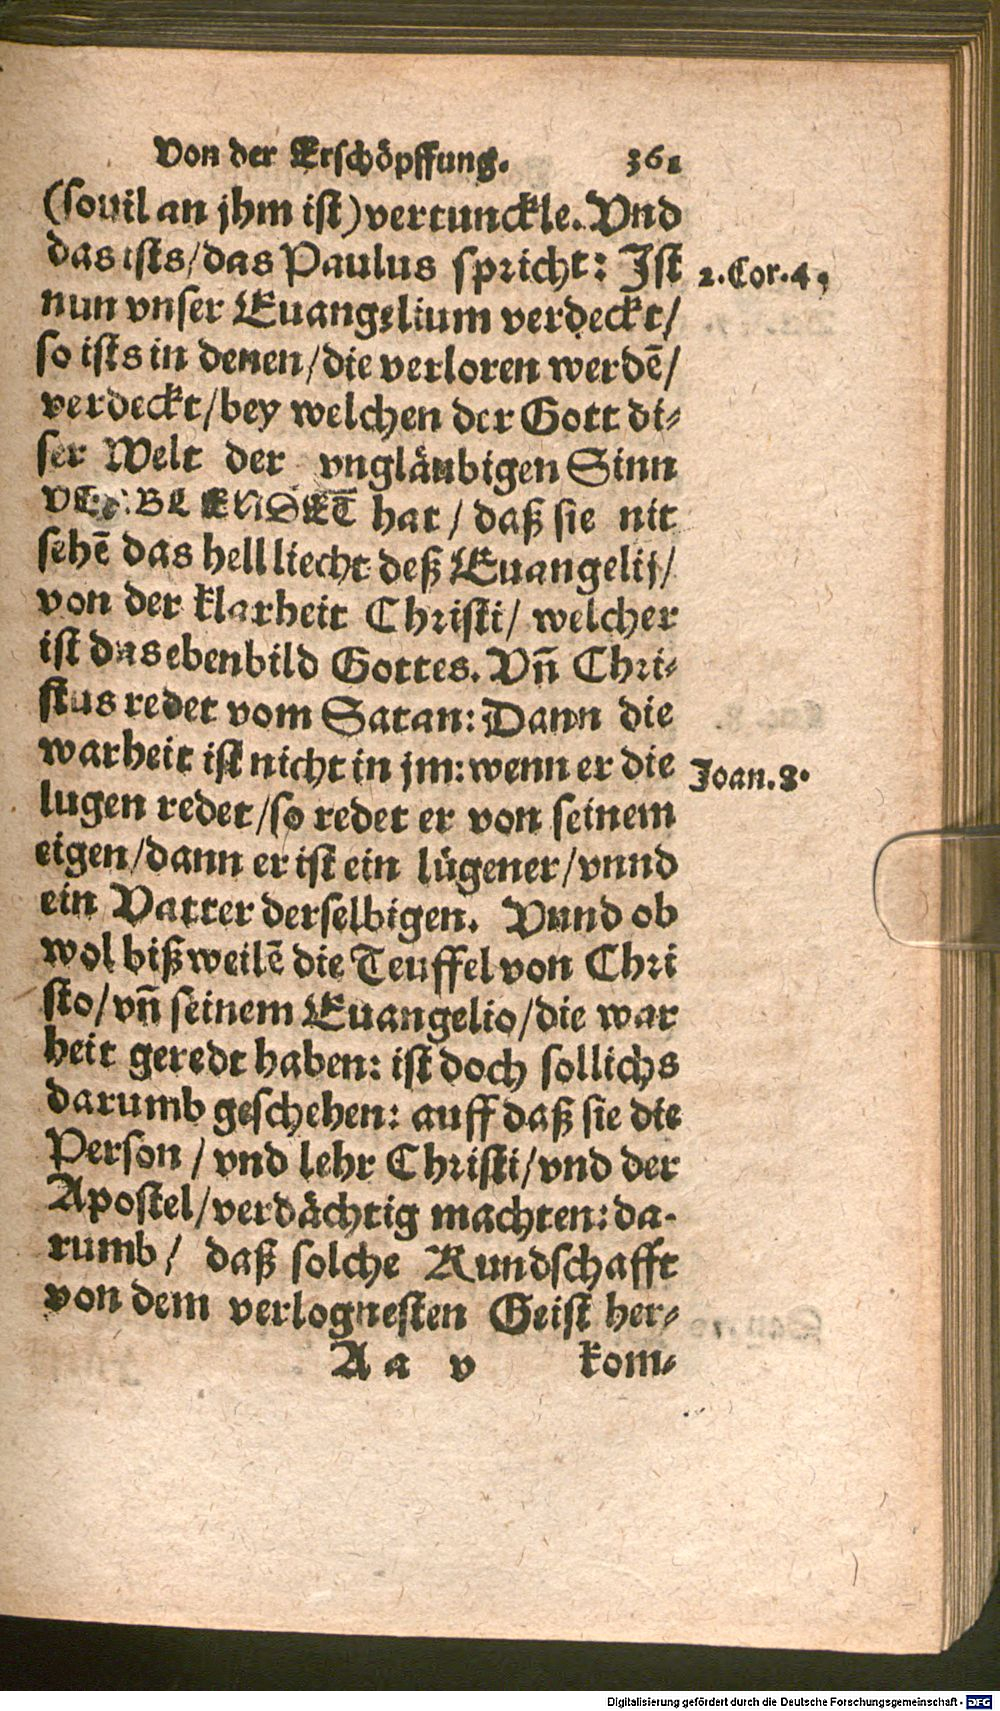 Von der Erschöpffung. 361
(sovil an jhm ist) vertunckle. Vnd
das ists/das Paulus spricht: Ist 2. Cor. 4.
nun vnser Euangelium verdeckt/
so ists in denen/die verloren werdē/
verdeckt/bey welchen der Gott di-
ser Welt der vngläubigen Sinn
VERBLENDET hat/ daß sie nit
sehē das hell liecht deß Euangelij/
von der klarheit Christi/ welcher
ist das ebenbild Gottes. Vñ Chri-
stus redet vom Satan: Dann die
warheit ist nicht in jm: wenn er die Joan. 8.
lugen redet/so redet er von seinem
eigen/dann er ist ein lügener/vnnd
ein Vatter derselbigen. Vnnd ob
wol bißweilē die Teuffel von Chri
sto/vñ seinem Euangelio/die war
heit geredt haben: ist doch sollichs
darumb geschehen: auff daß sie die
Person/ vnd lehr Christi/vnd der
Apostel/verdächtig machten: da-
rumb/ daß solche Kundschafft
von dem verlognesten Geist her-
A a v kom-
Digitalisierung gefördert durch die Deutsche Forschungsgemeinschaft - DFG